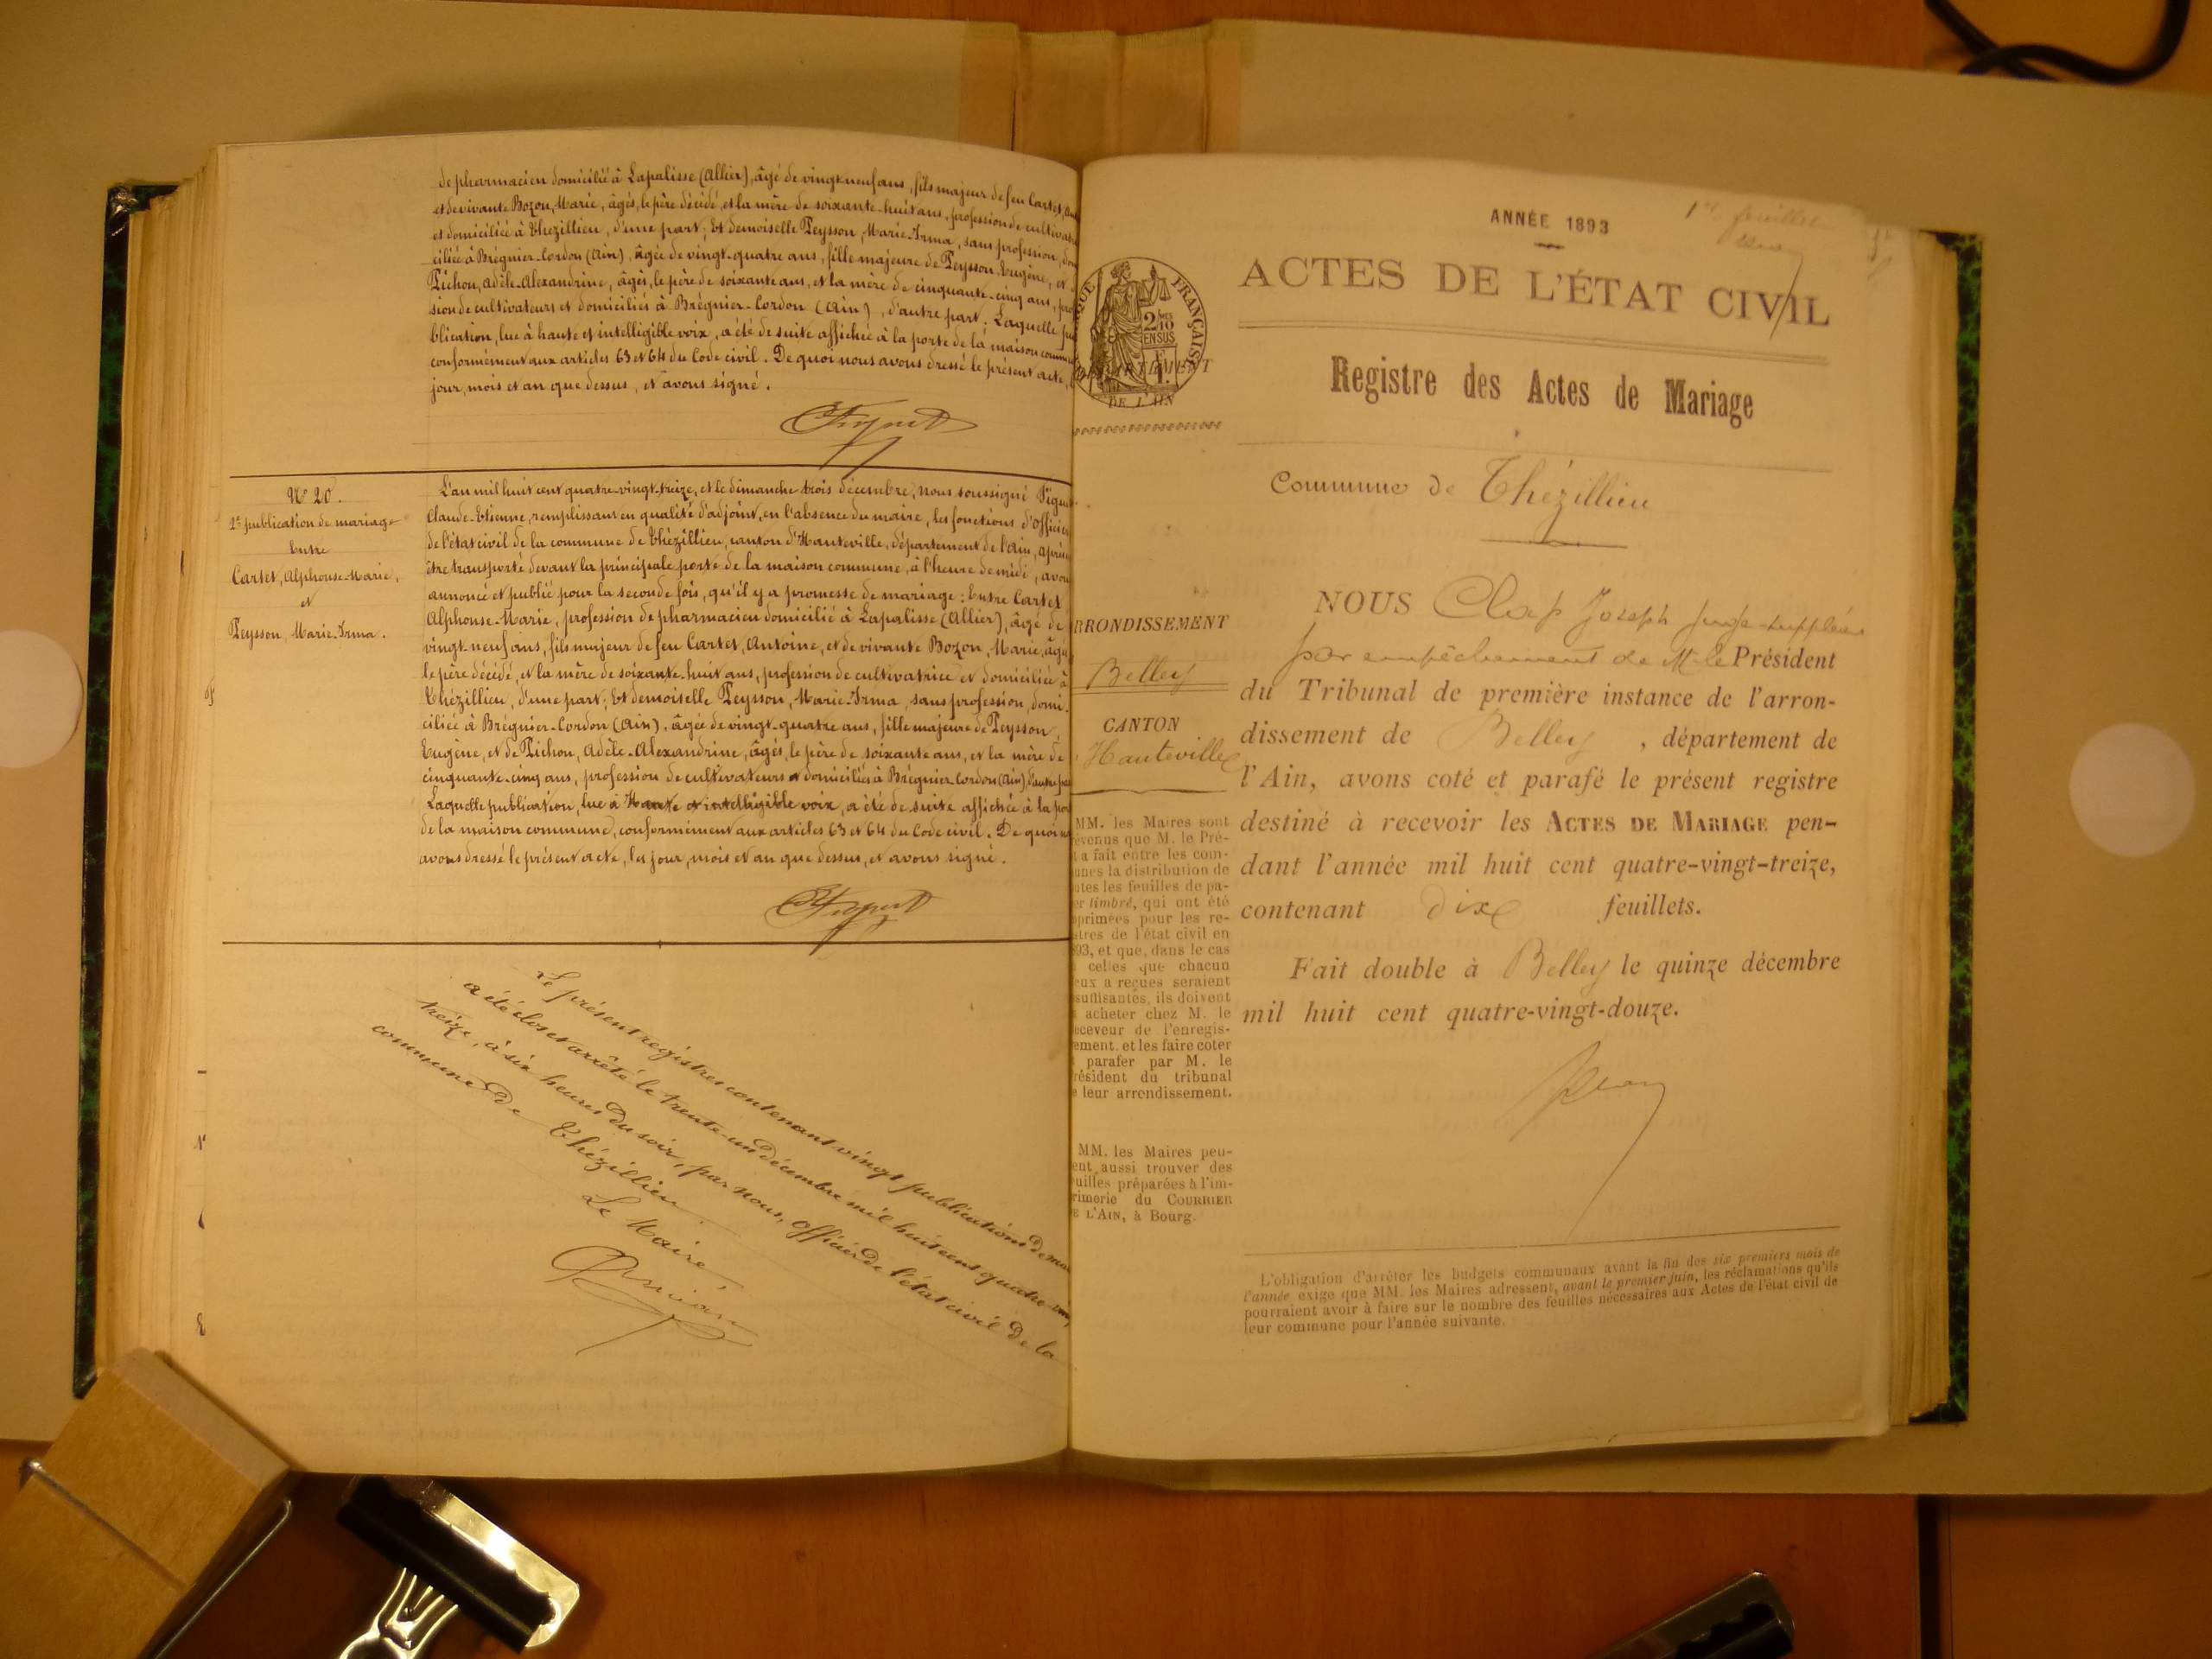 de pharmacien domicilié à Lapalisse (Allier), âgé de vingt-neuf ans, fils majeur de feu Cartet,
et de vivante Bozon, Marie, âgés, le père décédé, et la mère de soixante-huit ans, profession de
et domiciliée à Thézillieu, d'une part; Et demoiselle Peysson, Marie-Irma, sans profession,
ciliée à Brégnier-Cordon (Ain), âgée de vingt-quatre ans, fille majeure de Peysson, Eugène, et
Pichon, Adèle-Alexandrine, âgés, le père de soixante ans, et la mère de cinquante-cinq ans,
sion de cultivateurs et domiciliés à Brégnier-Cordon (Ain), d'autre part. Laquelle
blication, lue à haute et intelligible voix, a été de suite affichée à la porte de la maison
conformément aux articles 63 et 64 du Code civil. De quoi nous avons dressé le présent acte,
jour, mois et an que dessus, et avons signé.
N° 20.
2e publication de mariage
Entre
Cartet, Alphonse-Marie,
et
Peysson, Marie-Irma.
L'an mil huit cent quatre-vingt-treize, et le dimanche trois décembre, nous soussigné
Claude-Etienne, remplissant en qualité d'adjoint, en l'absence du maire, les fonctions d'officier
de l'état civil de la commune de Thézillieu, canton d'Hauteville, département de l'Ain, après
être transporté devant la principale porte de la maison commune, à l'heure de midi, avons
annoncé et publié pour la seconde fois, qu'il y a promesse de mariage: Entre Cartet
Alphonse-Marie, profession de pharmacien domicilié à Lapalisse (Allier), âgé de
vingt-neuf ans, fils majeur de feu Cartet, Antoine, et de vivante Bozon, Marie, âgés
le père décédé, et la mère de soixante-huit ans, profession de cultivatrice et domiciliée à
Thézillieu, d'une part; Et demoiselle Peysson, Marie-Irma, sans profession, domi-
ciliée à Brégnier-Cordon (Ain), âgée de vingt-quatre ans, fille majeure de Peysson,
Eugène, et de Pichon, Adèle-Alexandrine, âgés, le père de soixante ans, et la mère de
cinquante-cinq ans, profession de cultivateurs et domiciliés à Brégnier-Cordon (Ain)
Laquelle publication, lue à Haute et intelligible voix, a été de suite affichée à la
de la maison commune, conformément aux articles 63 et 64 du Code civil. De quoi
avons dressé le présent acte, les jour, mois et an que dessus, et avons signé.
Le présent registre contenant vingt publications de
a été clos et arrêté le trente-un décembre mil huit cent quatre-
treize, à six heures du soir, par nous, officier de l'état civil de la
commune de Thézillieu.
Le Maire,
FRANÇAISE
2/10 EN SUS
DE L'AIN
RRONDISSEMENT
Belley
CANTON
Hauteville
MM. les Maires sont
évenus que M. le Pré-
t a fait entre les com-
unes la distribution de
utes les feuilles de pa-
er timbré, qui ont été
primées pour les re-
stres de l'état civil en
893, et que, dans le cas
celles que chacun
eux a reçues seraient
suffisantes, ils doivent
acheter chez M. le
eceveur de l'enregis-
ement. et les faire coter
parafer par M. le
résident du tribunal
e leur arrondissement.
MM. les Maires peu-
ent aussi trouver des
uilles préparées à l'im-
rimerie du COURRIER
E L'AIN, à Bourg.
ANNÉE 1893
ACTES DE L'ÉTAT CIVIL
Registre des Actes de Mariage
Commune de Thézillieu
NOUS Clap Joseph juge-suppléant
par empêchement de M. le Président
du Tribunal de première instance de l'arron-
dissement de Belley, département de
l'Ain, avons coté et parafé le présent registre
destiné à recevoir les ACTES DE MARIAGE pen-
dant l'année mil huit cent quatre-vingt-treize,
contenant dix feuillets.
Fait double à Belley le quinze décembre
mil huit cent quatre-vingt-douze.
L'obligation d'arrêter les budgets communaux avant la fin des six premiers mois de
l'année exige que MM. les Maires adressent, avant le premier juin, les réclamations qu'ils
pourraient avoir à faire sur le nombre des feuilles nécessaires aux Actes de l'état civil de
leur commune pour l'année suivante.